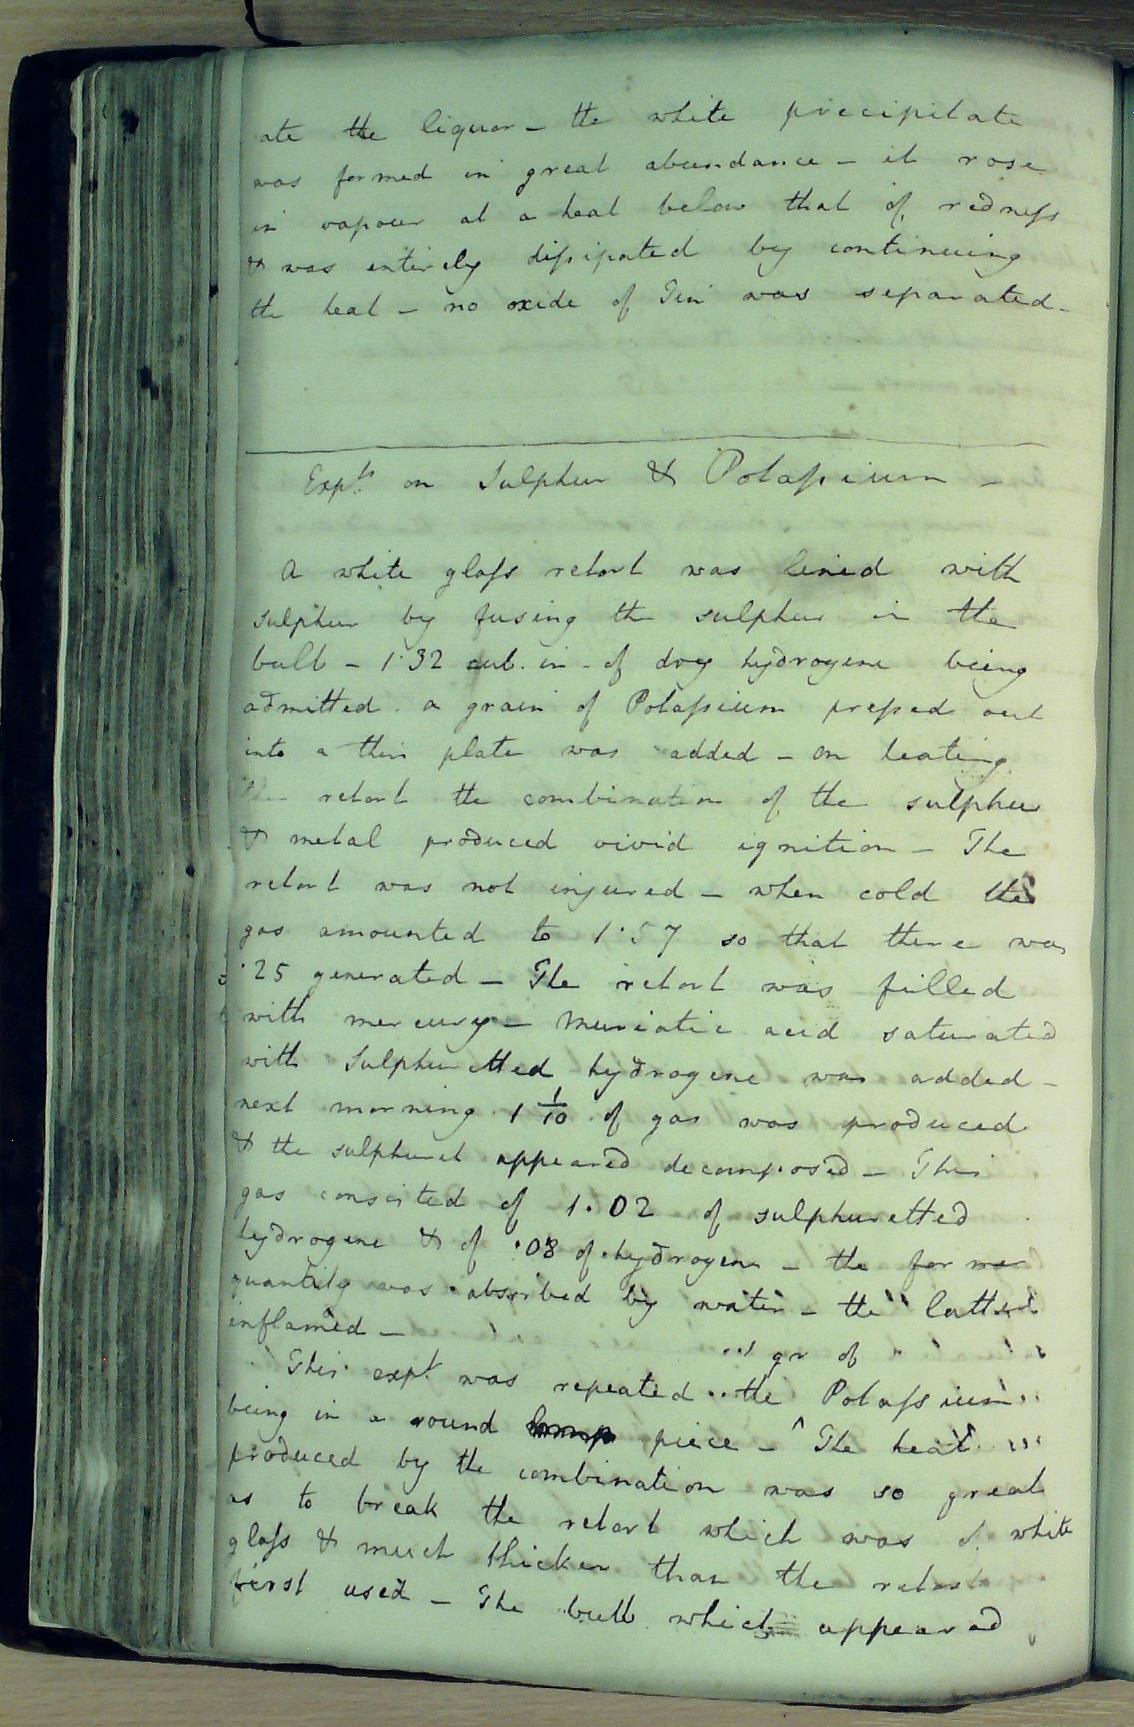 ate the liquor - the white precipitate
was formed in great abundance - it rose
in vapour at a heat below that of redness
& was entirely dissipated by continuing
the heat - no oxide of Tin was separated -
Expts. on Sulphur & Potassium -
A white glass retort was lined with
sulphur by fusing the sulphur in the
bulb - 1·32 cub. in - of dry hydrogene being
admitted. a grain of Potassium pressed out
into a thin plate was added - on heating
the retort the combination of the sulphur
& metal produced vivid ignition - The
retort was not injured - when cold the
gas amounted to 1·57 so that there was
·25 generated - The retort was filled
with mercury - Muriatic acid saturated
with Sulphuretted hydrogene was added -
next morning 1 1/10 of gas was produced
& the sulphuret appeared decomposed - This
gas consisted of 1.02 of sulphuretted
hydrogene & of ·08 of hydrogene - the former
quantity was absorbed by water - the latter
inflamed -
gr of
This expt. was repeated the Potassium
being in a round lump piece - ^ The heat
produced by the combination was so great
as to break the retort which was of white
glass & much thicker than the retort
first used - The bulb which appeared